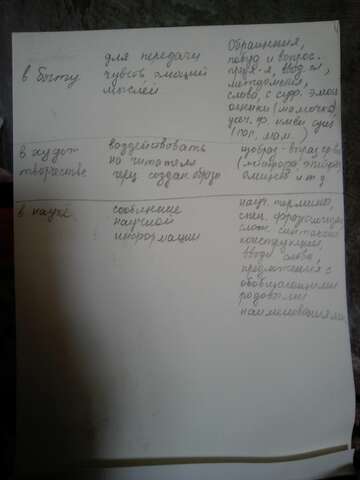 в быту
для передачи
чувств, эмоций
мыслей
Обращения,
побуд и вопрос.
пред-я, ввод. сл,
междомения,
слова, с суф. эмоц
оценки (мамочка),
усеч. ф. имен сущ
(пап, мам.)
в худож
творчестве
воздействовать
на читателя
через создан. образо
изобраз-выраз ср-ва
(метафора эпифора
олицетв и т д
в науке
сообщение
научной
информации
науч. термины,
спец. фразеология
слож. синтаксич
конструкции,
вводн слова,
предложения с
обобщающими
родовыми
наименованиями